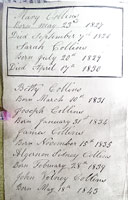 Mary Collins
Born May 23rd 1827
Died September 7th
Sarah Collins
Born July 20th 1829
Died April 17th 1830
Betty Collins
Born March 10th 1831
Joseph Collins
Born January 31st
James Collins
Born November 15th 1835
Algernon Sidney Collins
Born February 28th 1839
John Sidney Collins
Born May 18th 1843